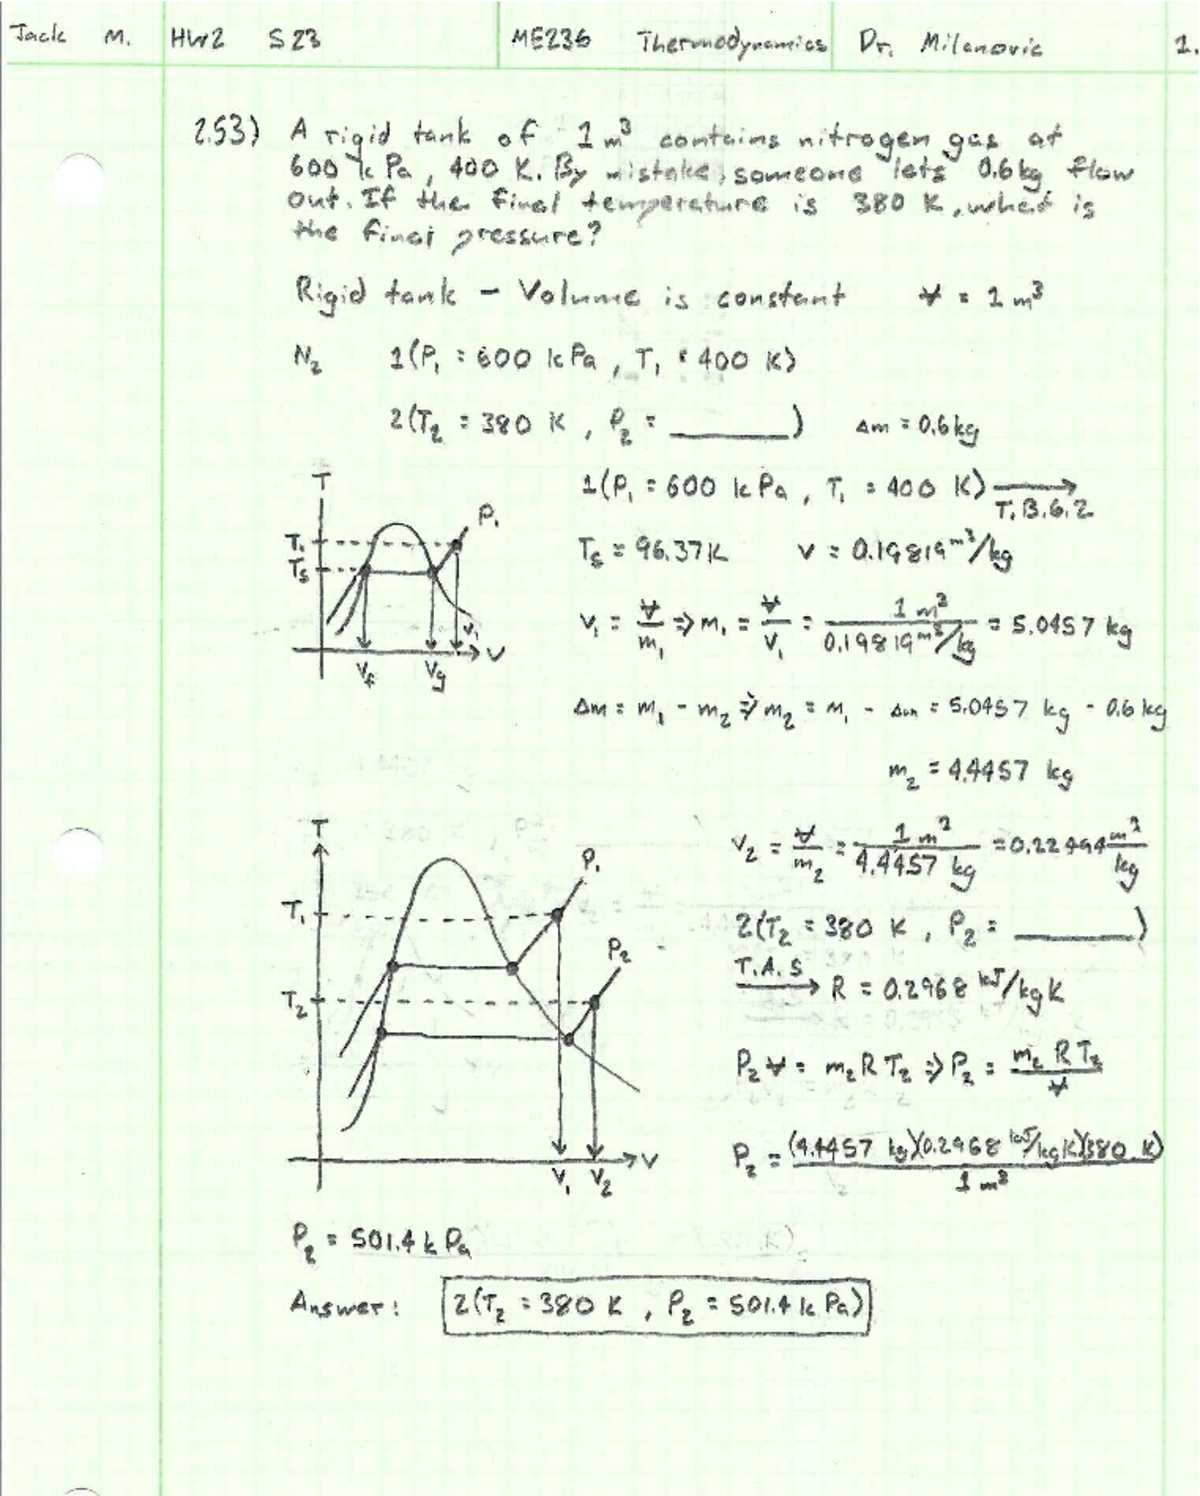 Jack M. HW2 S23 ME236 Thermodynamics Dr. Milanovic 1.
2.53) A rigid tank of 1 m³ contains nitrogen gas at
600 kPa, 400 K. By mistake, someone lets 0.6 kg flow
out. If the final temperature is 380 K, what is
the final pressure?
Rigid tank – Volume is constant V̶ = 1 m³
N₂ 1(P₁ = 600 kPa, T₁ = 400 K)
2(T₂ = 380 K, P₂ = ______) Δm = 0.6 kg
1(P₁ = 600 kPa, T₁ = 400 K) ⟶ T.B.6.2
T
P₁
T₁
Tₛ
v₁
v
v_f v_g
Tₛ = 96.37 K v = 0.19819 m³/kg
v₁ = V̶/m₁ ⇒ m₁ = V̶/v₁ = 1 m³/0.19819 m³/kg = 5.0457 kg
Δm = m₁ - m₂ ⇒ m₂ = m₁ - Δm = 5.0457 kg - 0.6 kg
m₂ = 4.4457 kg
T
P₁
T₁
P₂
T₂
v
v₁ v₂
v₂ = V̶/m₂ = 1 m³/4.4457 kg = 0.22494 m³/kg
2(T₂ = 380 K, P₂ = ______)
T.A.5 ⟶ R = 0.2968 kJ/kg K
P₂V̶ = m₂RT₂ ⇒ P₂ = m₂RT₂/V̶
P₂ = (4.4457 kg)(0.2968 kJ/kg K)(380 K)/1 m³
P₂ = 501.4 kPa
Answer: 2(T₂ = 380 K, P₂ = 501.4 kPa)